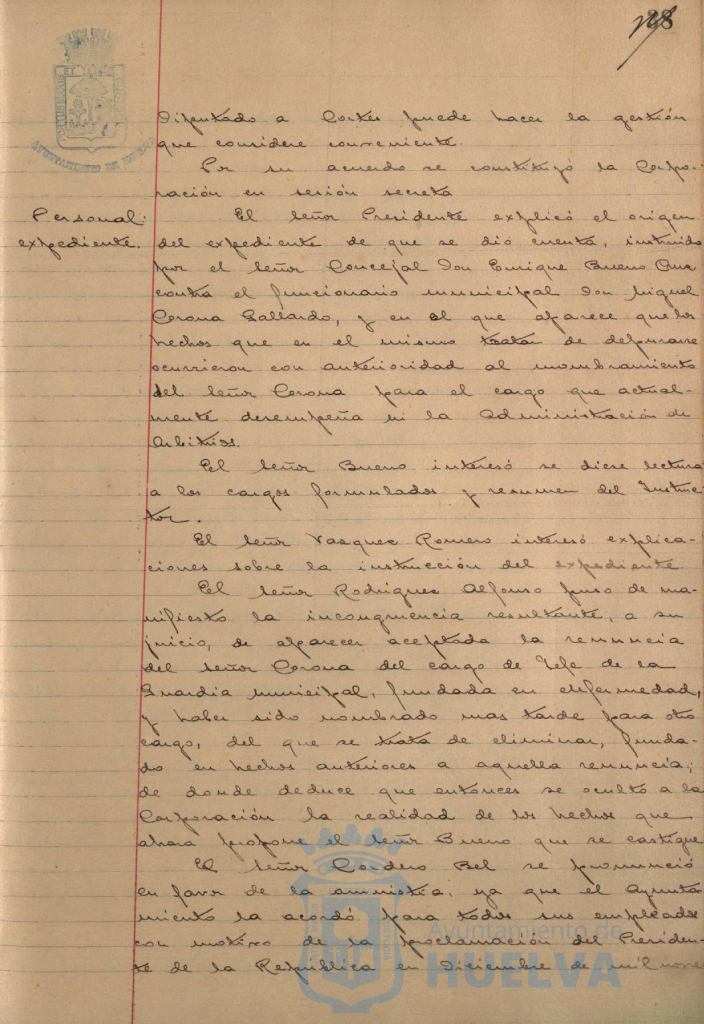 128
AYUNTAMIENTO DE HUELVA
Diputado a Cortes puede hacer la gestión
que considere conveniente.
Por su acuerdo se constituyó la Corpo-
ración en sesión secreta
Personal: expediente.
El señor Presidente explicó el origen
del expediente de que se dió cuenta, instruido
por el señor Concejal Don Enrique Bueno Cruz
contra el funcionario municipal Don Miguel
Corona Gallardo, y en el que aparece que los
hechos que en el mismo tratan de depurarse
ocurrieron con anterioridad al nombramiento
del señor Corona para el cargo que actual-
mente desempeña en la Administración de
Arbitrios.
El señor Bueno interesó se diese lectura
a los cargos formulados y resumen del Instruc-
tor.
El señor Vasquez Romero interesó explica-
ciones sobre la instrucción del expediente.
El señor Rodriguez Alfonso puso de ma-
nifiesto la incongruencia resultante, a su
juicio, de aparecer aceptada la renuncia
del señor Corona del cargo de Jefe de la
Guardia municipal, fundada en enfermedad,
y haber sido nombrado mas tarde para otro
cargo, del que se trata de eliminar, funda-
do en hechos anteriores a aquella renuncia;
de donde deduce que entonces se ocultó a la
Corporación la realidad de los hechos que
ahora propone el señor Bueno que se castigue
El señor Cordero Bel se pronunció
en favor de la amnistia; ya que el Ayunta
miento la acordó para todos sus empleados
con motivo de la proclamación del Presiden-
te de la República en Diciembre de mil nove
Ayuntamiento de
HUELVA